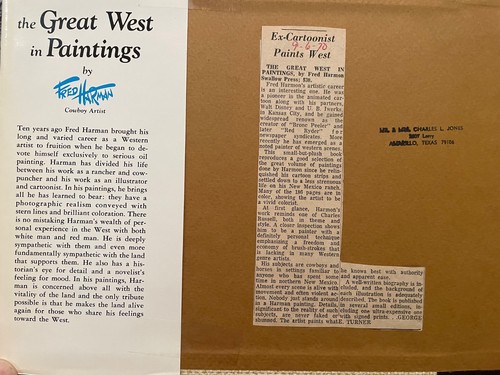 the Great West
in Paintings
by
FRED HARMAN
Cowboy Artist
Ten years ago Fred Harman brought his
long and varied career as a Western
artist to fruition when he began to de-
vote himself exclusively to serious oil
painting. Harman has divided his life
between his work as a rancher and cow-
puncher and his work as an illustrator
and cartoonist. In his paintings, he brings
all he has learned to bear; they have a
photographic realism conveyed with
stern lines and brilliant coloration. There
is no mistaking Harman's wealth of per-
sonal experience in the West with both
white man and red man. He is deeply
sympathetic with them and even more
fundamentally sympathetic with the land
that supports them. He also has a his-
torian's eye for detail and a novelist's
feeling for mood. In his paintings, Har-
man is concerned above all with the
vitality of the land and the only tribute
possible is that he makes the land alive
again for those who share his feelings
toward the West.
Ex-Cartoonist
9-6-70
Paints West
THE GREAT WEST IN
PAINTINGS, by Fred Harmon
Swallow Press; $20.
Fred Harmon's artistic career
is an interesting one. He was
a pioneer in the animated car-
toon along with his partners,
Walt Disney and U. B. Iwerks,
in Kansas City, and he gained
widespread renown as the
creator of "Bronc Peeler" and
later "Red Ryder" for
newspaper syndicates. More
recently he has emerged as a
noted painter of western scenes.
This small-but-plush book
reproduces a good selection of
the great volume of paintings
done by Harmon since he relin-
quished his cartoon strips and
settled down to a less strenuous
life on his New Mexico ranch.
Many of the 186 pages are in
color, showing the artist to be
a vivid colorist.
At first glance, Harmon's
work reminds one of Charles
Russell, both in theme and
style. A closer inspection shows
him to be a painter with a
definitely personal technique
emphasizing a freedom and
economy of brush-strokes that
is lacking in many Western
genre artists.
His subjects are cowboys and
horses in settings familiar to
anyone who has spent some
time in northern New Mexico.
Almost every scene is alive with
movement and often violent ac-
tion. Nobody just stands around
in a Harman painting. Details,
significant to the reality of such
subjects, are never faked or
shunned. The artist paints what
he knows best with authority
and apparent ease.
A well-written biography is in-
cluded, and the background of
each illustration is adequately
described. The book is published
in several small editions, in-
cluding one ultra-expensive one
with signed prints. . GEORGE
E. TURNER
MR. & MRS. CHARLES L. JONES
Larry
AMARILLO, TEXAS 79106